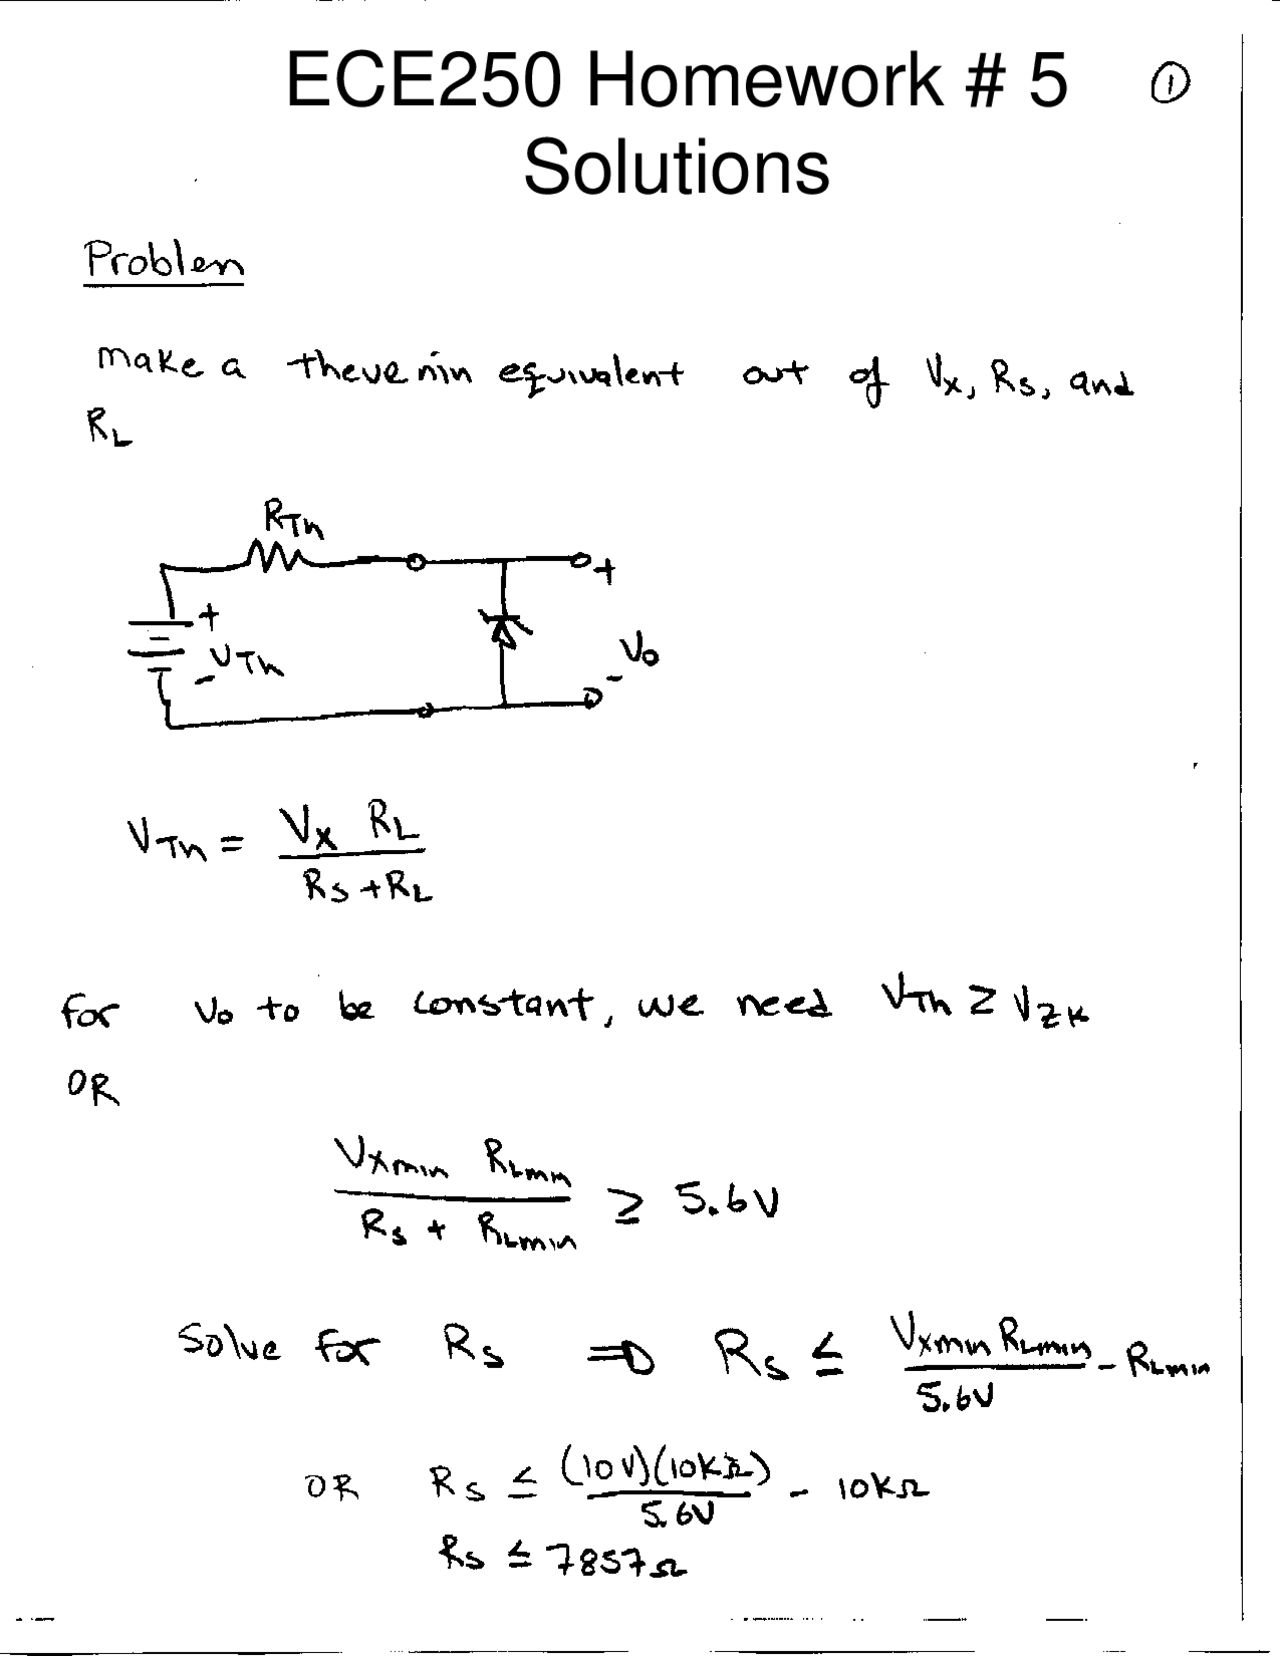 ECE250 Homework # 5
①
Solutions
Problem
make a thevenin equivalent out of Vx, Rs, and
RL
RTh
+
VTh
-
+
Vo
-
VTh = Vx RL / Rs + RL
for Vo to be constant, we need VTh ≥ VZK
OR
Vxmin RLmin / Rs + RLmin ≥ 5.6V
Solve for Rs ⇒ Rs ≤ Vxmin RLmin / 5.6V - RLmin
OR Rs ≤ (10V)(10KΩ) / 5.6V - 10KΩ
Rs ≤ 7857Ω